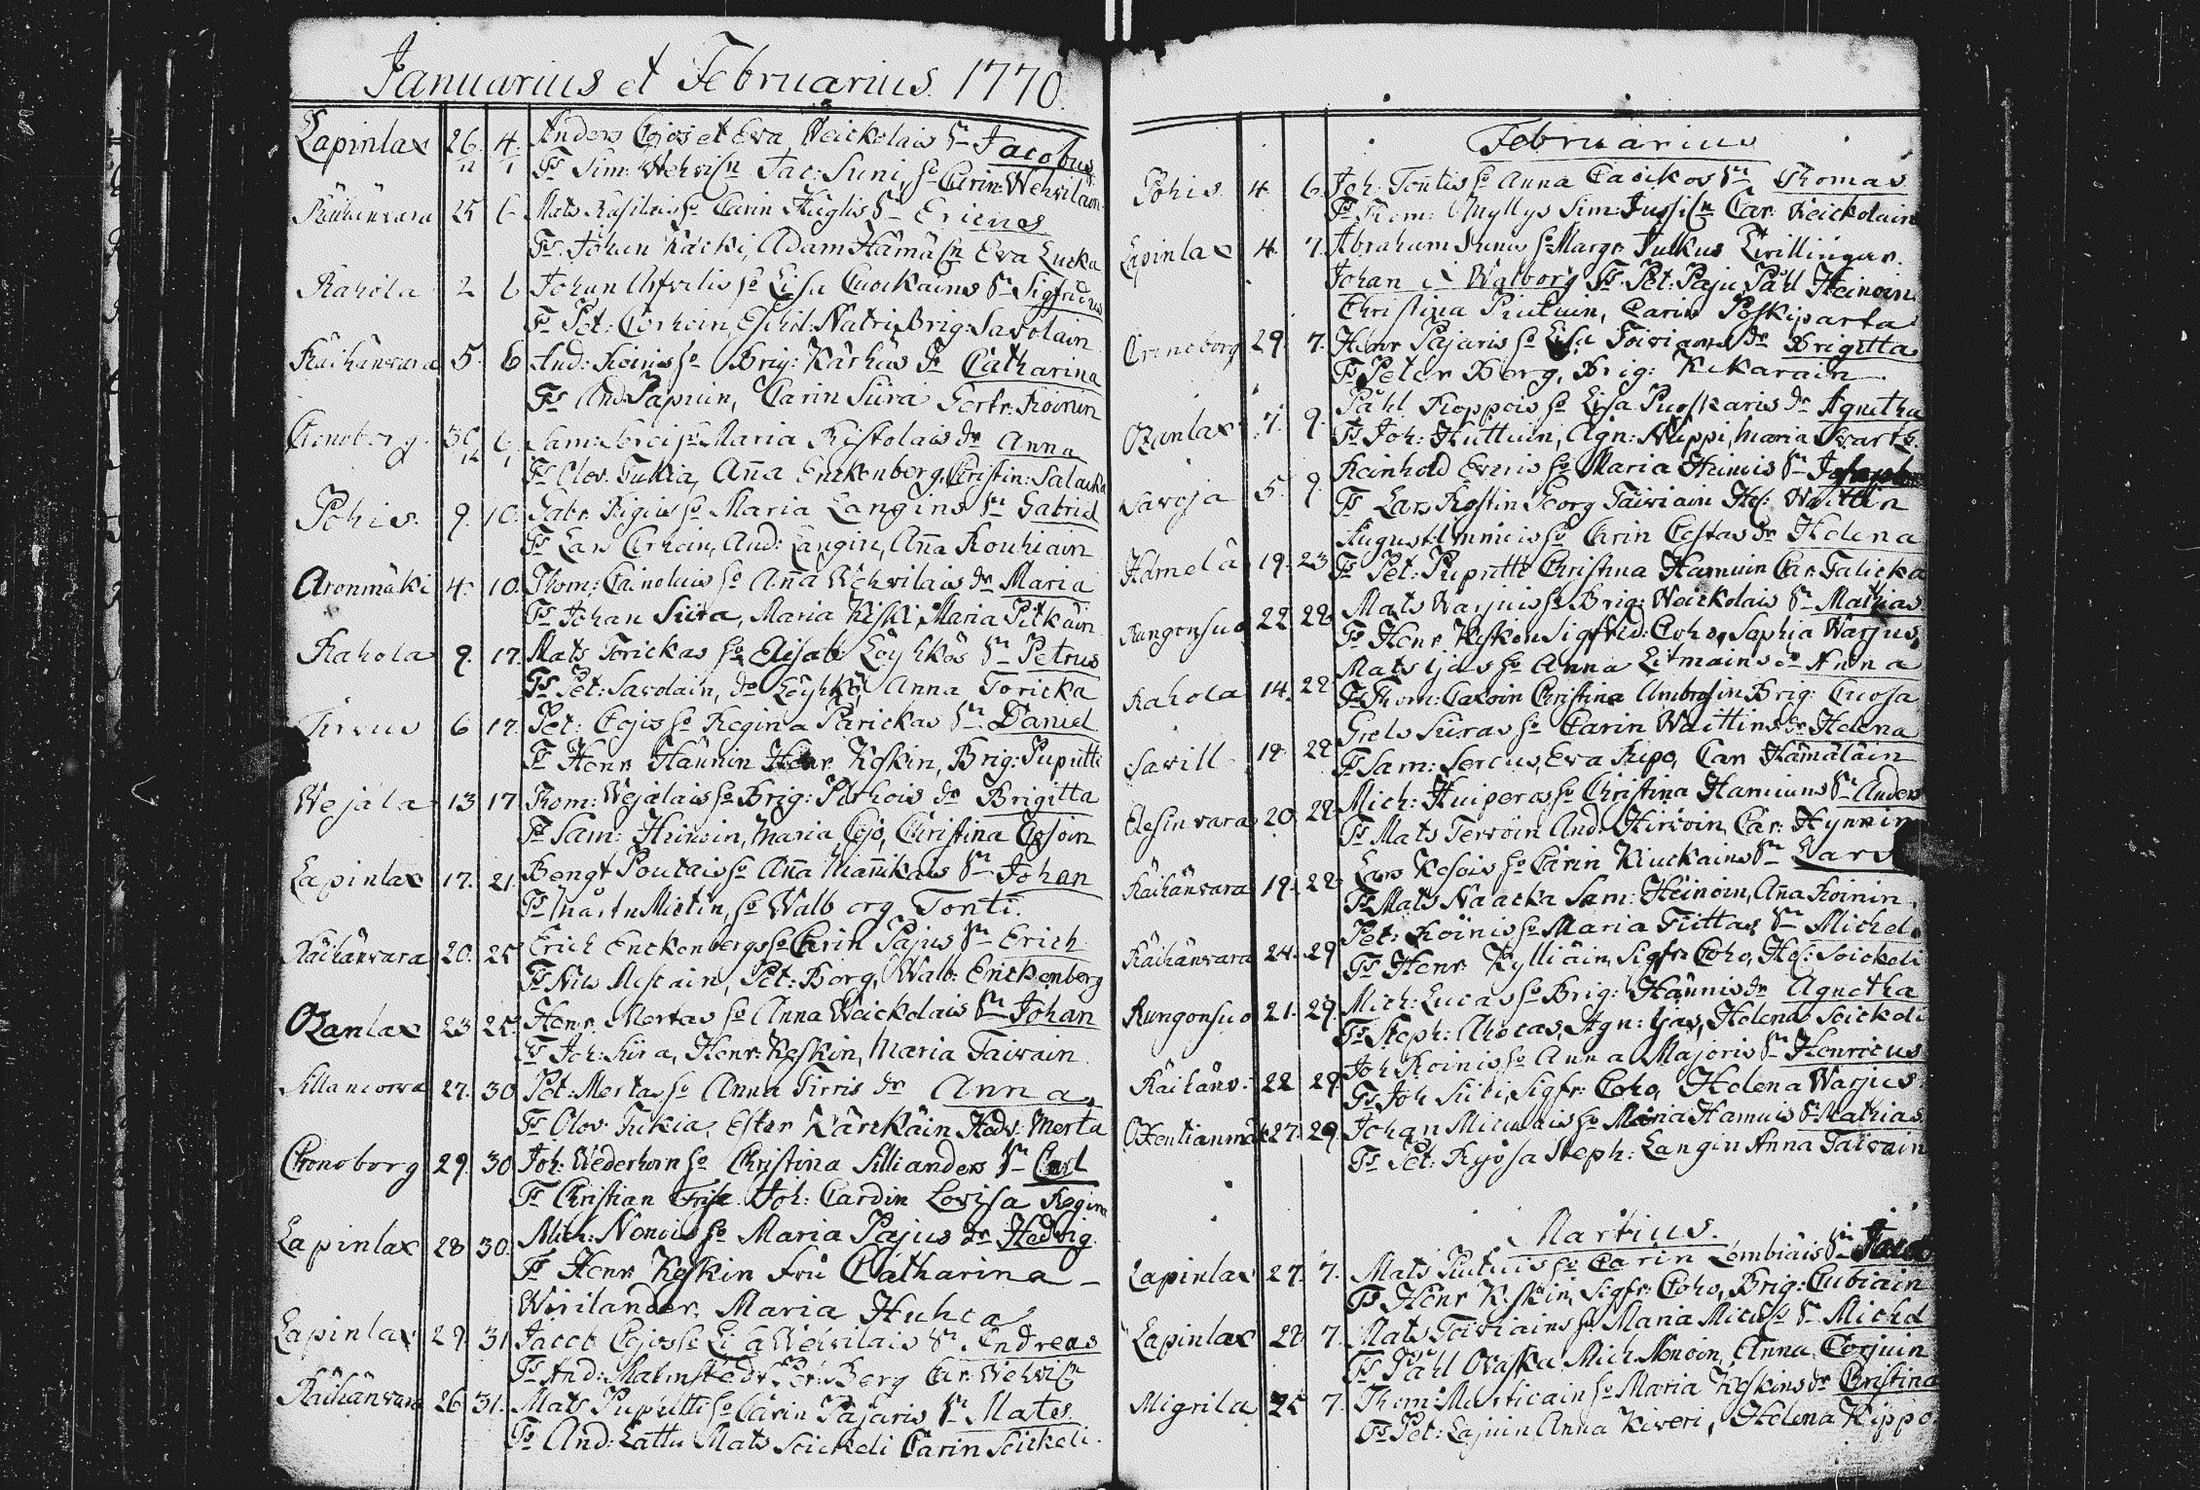 Januarius et Februarius. 1770.
Lapinlax 26 4. Anders Cojos et Eva Weickolais Sn Jacobus
11 1 Fr Sim: Wehvisn Jac: Suni, so Carin: Wehvilain
Räihänvara 25 6 Mats so Carin Sn Ericus
Fr. Johan Adam Hämäsn Eva Lucka
Rahola 2 6 Johan so Lisa Sn Sigfridus
Fr Pet: Corhoin, Natri, Brig: Savolain
Räihänvara 5. 6 And: Koinis so Brig: Kärhäs dr Catharina
Fr And: Carin Sura Koinin
Croneborg. 30 6. Sam: so Maria Ristolais dr Anna
12 1 Fr Olov. Tukia, Aña Enckenberg, Christin: Salacka
Pohis. 9. 10. Gabr. so Maria Langins Sn Gabriel
Fr Lars Corhoin, And: Langin, Aña Rouhiain
Aronmäki 4. 10. Thom: Cainolais so Aña Wehvilais dr Maria
Fr Johan Siira, Maria Kiski, Maria Pitkäin
Rahola 9. 17. Mats Torickas so Lisab Löyhkös Sn Petrus
Fr Pet: Savolain, do Löyhkö, Anna Toricka
6 17. Pet: Cojos so Regina Parickas Sn Daniel
Fr Henr Häunin Henr. Keskin, Brig: Puputti
Wejala 13 17. Thom: Wejalais so Brig: Pethois dr Brigitta
Fr Sam: Heinoin, Maria Cojo, Christina
Lapinlax 17. 21. Bengt Poutais so Aña Miañikais Sn Johan
Fr Mårtn Mietin, so Walborg Tonti.
Räihänvara 20. 25 Erich Enckenbergs so Carin Pajus Sn Erich
Fr Nils Pet: Borg, Walb: Enckenberg
Ozanlax 23 25. Henr. Mertas so Anna Weickolais Sn Johan
Fr Joh: Siira, Henr: Keskin, Maria Taivain
27. 30 Pet: Mertas so Anna Tirris dr Anna
Fr Olov. Tukia, Ester Kärckäin Hedv: Merta
Croneborg 29. 30 Joh: Wederhorn so Christina Sillianders Sn Carl
Fr Christian Joh: Cardin Lovisa Regina
Lapinlax 28 30. Mich: Nonois so Maria Pajus dr Hedvig.
Fr Henr Keskin Fru Catharina –
Wirilander, Maria Huhca
Lapinlax 29. 31 Jacob Cojos so Lisa Wehvilais Sn Andreas
Fr And: Malmstedt Pet: Borg Car: Wehvisn
Räihänvara 26 31. Mats Puputtis so Carin Pajaris Sn Mates
Fr And: Lattu Mats Seickeli Carin Seickeli.
Februarius
Pohis 4 6. Joh: Tontis so Anna Caickos Sn Thomas
Fr Thom: Myllys Sim: Jussisn Car: Weickolain
Lapinlax 4. 7. Abraham Sunis so Margr Pulkus Twillingar.
Johan & Walborg Fr Pet: Paju, Påhl Heinoin
Christina Piutuin, Carin Poskiparta
Croneborg 29. 7. Henr Pajaris so Lisa Toivians dr Brigitta
Fr Peter Borg, Brig: Kekarain
Ozanlax 7. 9. Påhl Roppois so Lisa Puoskaris dr Agnetha
Fr Joh: Huttuin, Agn: Nuppi, Maria Svarts.
Savoja 5. 9. Reinhold so Maria Heinois Sn Joseph
Fr Lars Kostin Georg Taiviain Hel: Waittin
19. 23 August: Immois so Carin Costas dr Helena
Fr Pet: Puputti Christina Hamuin Car: Talicka
Rungonsuo 22 28 Mats Warjuis so Brig: Weickolais Sn Mathias
Fr Henr Keskin Sigfrid: Coho, Saphia Warjus,
Rahola 14. 28 Mats Ijäs so Anna Litmains dr Anna
Fr Thom: Caxoin Christina Ambrosin Brig: Cuosa
Savill 19 28 Grels Suras so Carin Waittins dr Helena
Fr Sam: Sercus, Eva Repo, Car: Hämäläin
20 28 Mich: Kuiperos so Christina Hamuins Sn Anders
Fr Mats Tervoin And: Hirvoin, Car: Hynnin
Räihänvara 19. 28 Lars Kesois so Carin Kiuckains Sn Lars
Fr Mats Naacka Sam: Heinoin, Aña Koinin
Räihänvara 24. 29 Pet: Koinis so Maria Tiittas Sn Michel.
Fr Henr Kylliäin, Sigfr: Coho, Hel: Seickeli
Rungonsuo 21. 29. Mich: Lucas so Brig: Häunis dr Agnetha
Fr Steph: Ahocas, Agn: Ijäs, Helena Seickeli
Räihänv: 22 29 Joh Koinis so Anna Majoris Sn Henricus
Fr Joh Siiti, Sigfr: Coho, Helena Warjus
27. 29. Johan Micuolais so Maria Hamuis Sn Mathias
Fr Pet: Ryösa Steph: Langin Anna Taivain
Martius.
Lapinlax 27. 7. Mats Piutuis so Carin Lembiäis Sn
Fr Henr Keskin, Sigfr: Coho, Brig: Cubiain
Lapinlax 28 7. Mats Toiviains so Maria Sn Michel
Fr Påhl Ovaska Mich Nonoin, Anna Corjuin
Migrila 25 7. Thom: Marticain so Maria Keskins dr Christina
Fr Pet: Lajuin Anna Kiveri, Helena Kippo